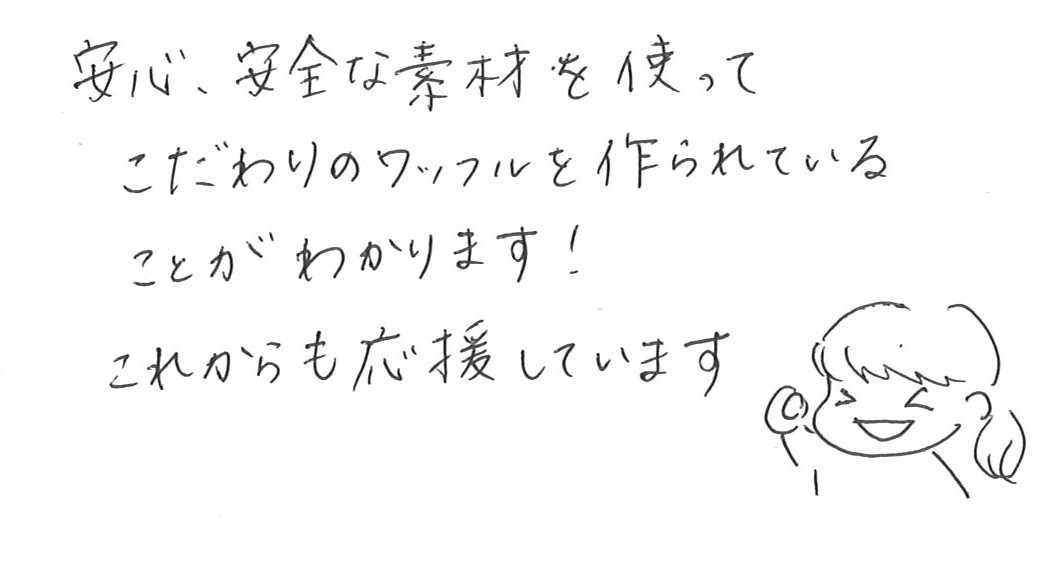 安心、安全な素材を使って
こだわりのワッフルを作られている
ことがわかります!
これからも応援しています